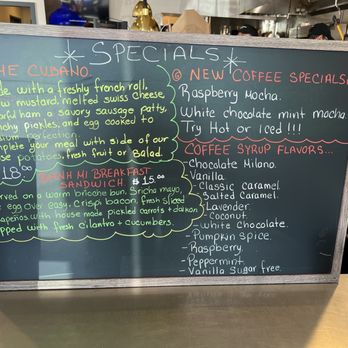 SPECIALS
HE CUBANO.
de with a freshly french roll,
ow mustard, melted swiss cheese,
ful ham a savory sausage patty,
nchy pickles, and egg cooked to
sium perfection.
mplete your meal with side of our
se potatoes, fresh fruit or Salad.
18.00
BANH MI BREAKFAST
SANDWICH. $15.00
erved on a warm brioche bun, Sriracha mayo,
egg over easy, crispi bacon, fresh sliced
apeños with house made pickled carrots + daikon
pped with fresh cilantro + cucumbers
@ NEW COFFEE SPECIALS
Raspberry Mocha.
White chocolate mint mocha.
Try Hot or iced !!!
COFFEE SYRUP FLAVORS...
-Chocolate Milano.
-Vanilla
-Classic Caramel.
-Salted Caramel.
-Lavender.
-Coconut.
-White Chocolate.
-Pumpkin Spice.
-Raspberry
-Peppermint.
-Vanilla Sugar free.